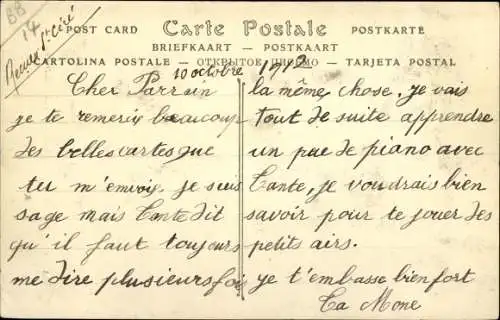 BB
14
Carte Postale
POST CARD
POSTKARTE
BRIEFKAART — POSTKAART
CARTOLINA POSTALE — ОТКРЫТОЕ ПИСЬМО — TARJETA POSTAL
10 octobre 1912
Cher Parrain
je te remerix beaucoup
des belles cartes que
tu m'envoy. je suis
sage mais tante dit
qu'il faut toujours
me dire plusieurs fois
la même chose. je vais
tout de suite apprendre
un pue de piano avec
tante, je voudrais bien
savoir pour te jouer des
petits airs.
je t'embasse bien fort
Ta Mone